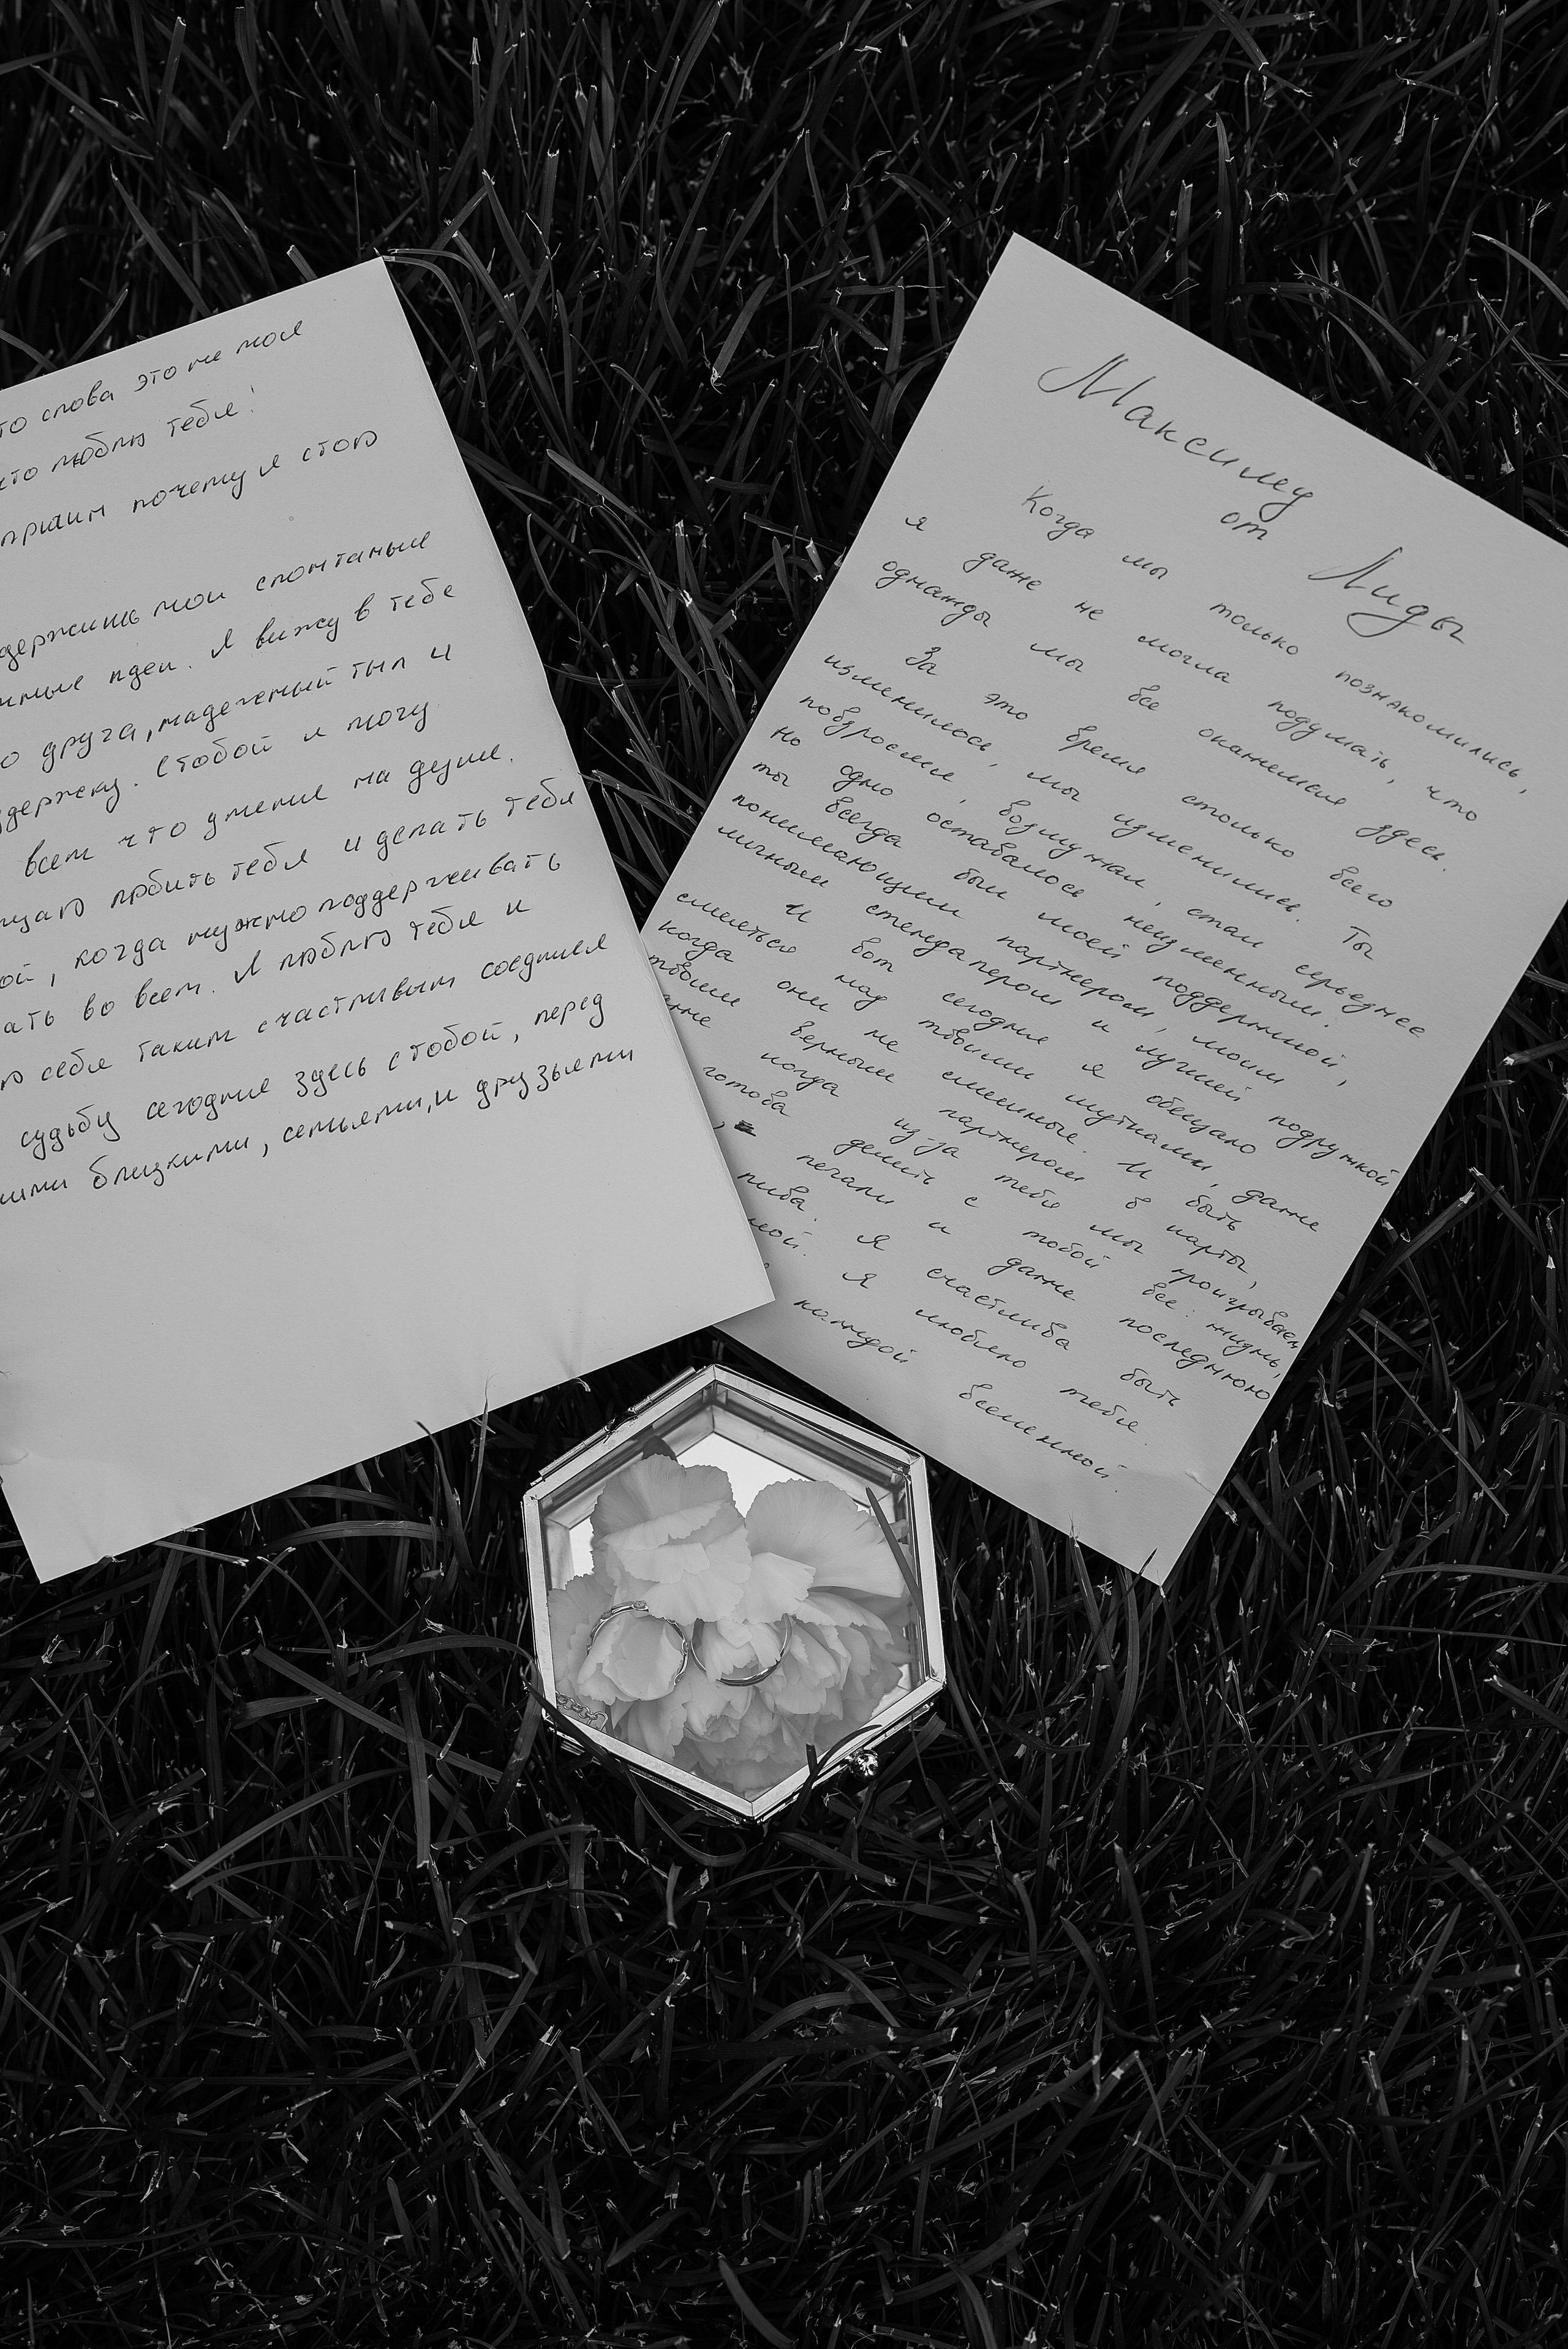 то слова это не моя
что люблю тебя!
почему я стою
мои спонтаные
идеи. Я вижу в тебе
друга, надежный тыл и
с тобой я могу
всем что у меня на душе.
любить тебя и делать тебя
ой, когда нужно поддерживать
ать во всем. Я люблю тебя и
себя таким счастливым соединяя
судьбу сегодня здесь с тобой, перед
ими близкими, семьями, и друзьями
Максиму
от Лиды
Когда мы только познакомились,
я даже не могла подумать, что
однажды мы все окажемся здесь.
За это время столько всего
изменилось, мы изменились. Ты
повзрослел, возмужал, стал серьезнее
Но одно оставалось неизменным.
ты всегда был моей поддержкой,
понимающим партнером, моим
личным стендапером и лучшей подружкой
И вот сегодня я обещаю
смеяться над твоими шутками, даже
когда они не смешные. И быть
твоим верным партнером в карты,
когда из-за тебя мы проигрываем
готова делить с тобой все: жизнь,
, печали и даже последнюю
пива. Я счастлива быть
ной. Я люблю тебя
каждой вселенной